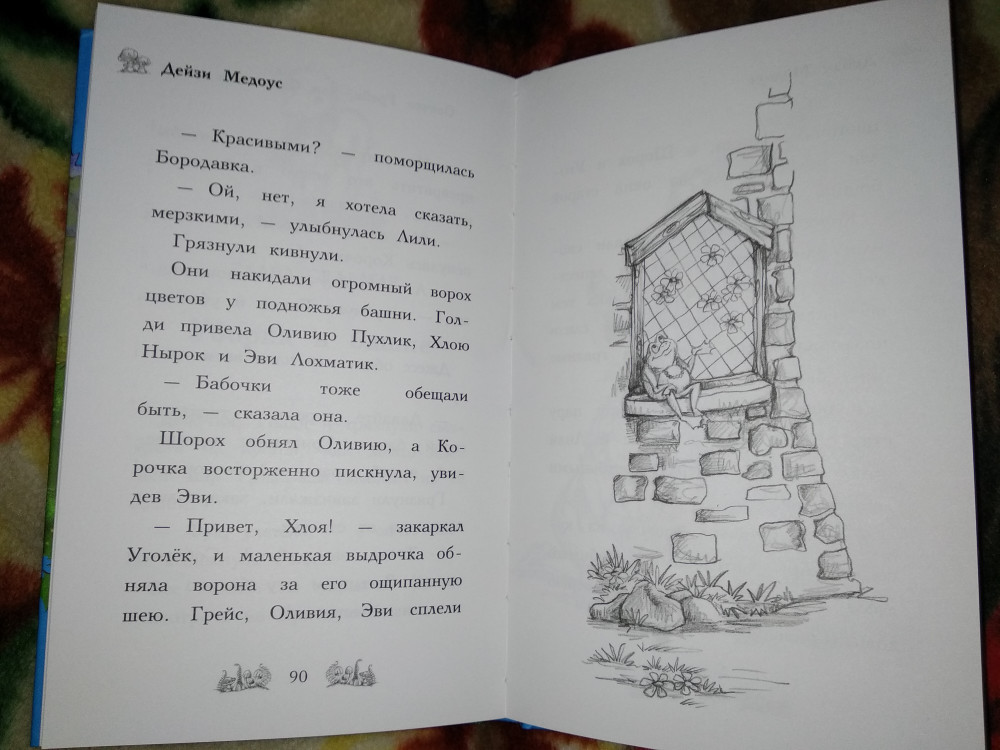 Дейзи Медоус
— Красивыми? — поморщилась
Бородавка.
— Ой, нет, я хотела сказать,
мерзкими, — улыбнулась Лили.
Грязнули кивнули.
Они накидали огромный ворох
цветов у подножья башни. Гол-
ди привела Оливию Пухлик, Хлою
Нырок и Эви Лохматик.
— Бабочки тоже обещали
быть, — сказала она.
Шорох обнял Оливию, а Ко-
рочка восторженно пискнула, уви-
дев Эви.
— Привет, Хлоя! — закаркал
Уголёк, и маленькая выдрочка об-
няла ворона за его ощипанную
шею. Грейс, Оливия, Эви сплели
90